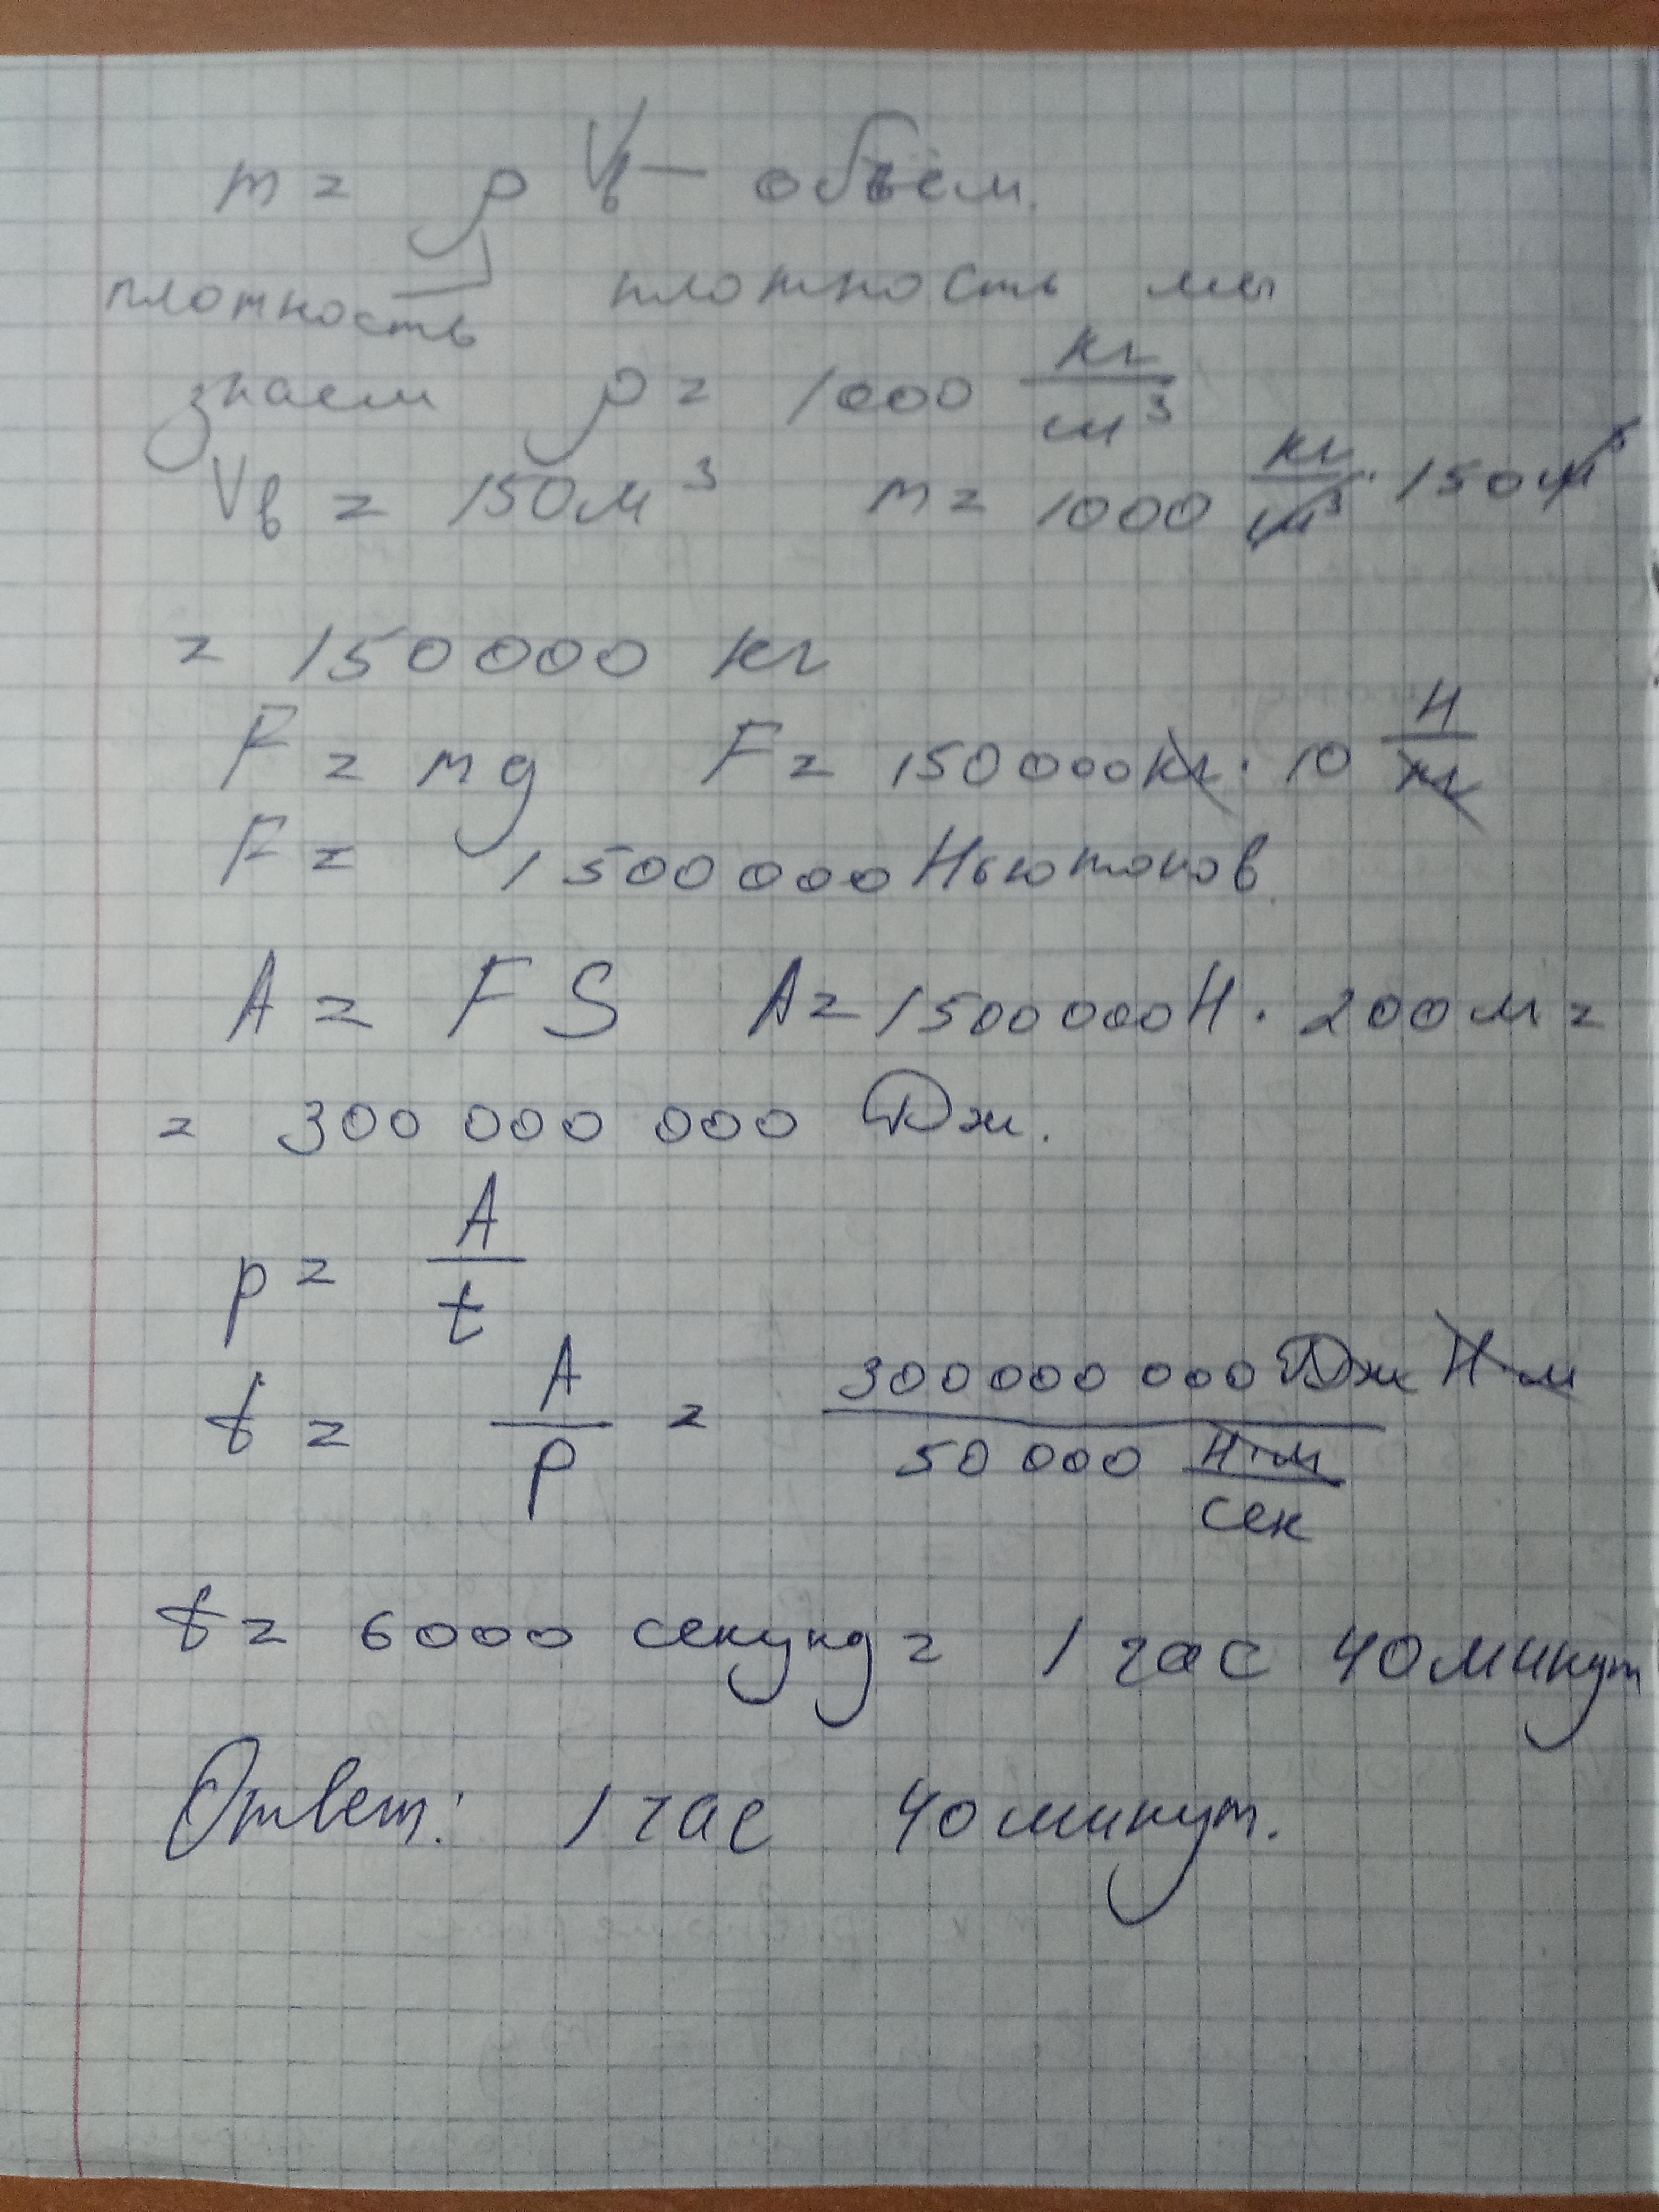 m = ρ Vв — объём.
плотность плотность мы
знаем ρ = 1000 кг/м³
Vв = 150м³ m = 1000 кг/м³ · 150м³
= 150000 кг
F = mg F = 150000кг · 10 Н/кг
F = 1500000 Ньютонов.
A = FS A = 1500000Н · 200м =
= 300 000 000 Дж.
p = A/t
t = A/p = 300000 000 Дж Н·м / 50 000 Н·м/сек
t = 6000 секунд = 1 час 40 минут
Ответ: 1 час 40 минут.